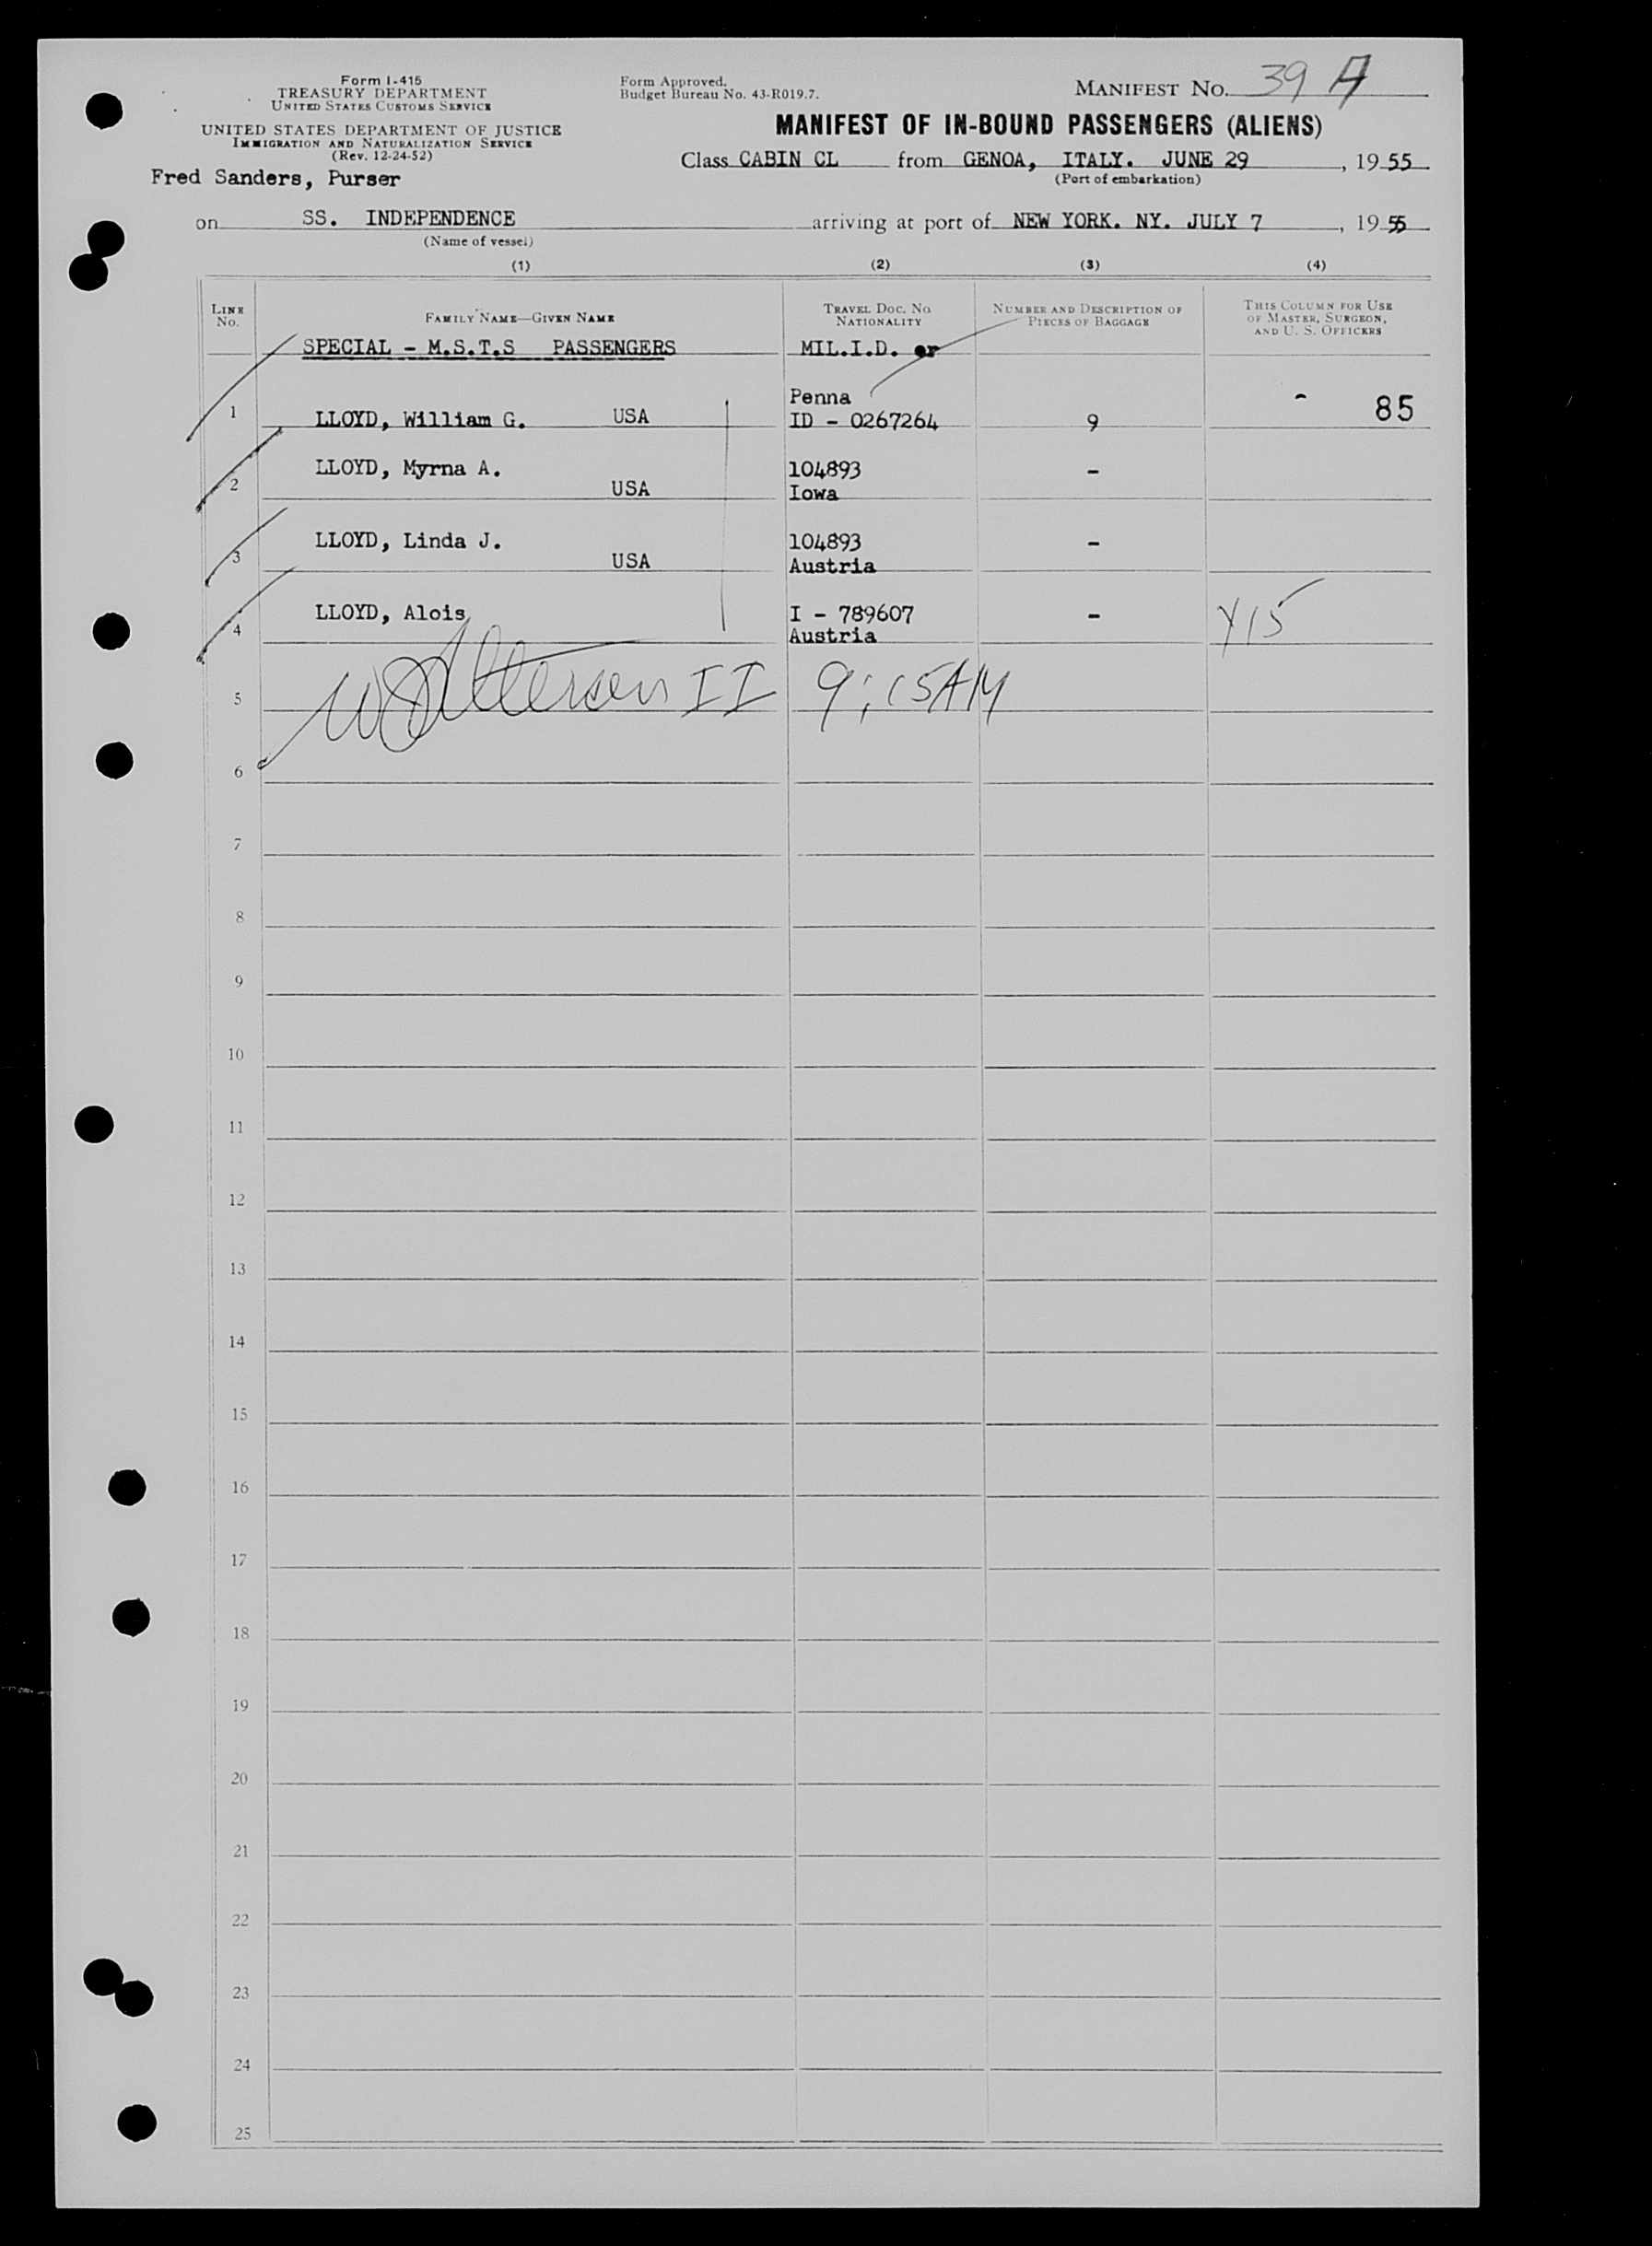 Form I-415
TREASURY DEPARTMENT
UNITED STATES CUSTOMS SERVICE
UNITED STATES DEPARTMENT OF JUSTICE
IMMIGRATION AND NATURALIZATION SERVICE
(Rev. 12-24-52)
Fred Sanders, Purser
Form Approved.
Budget Bureau No. 43-R019.7.
MANIFEST NO. 39 A
MANIFEST OF IN-BOUND PASSENGERS (ALIENS)
Class CABIN CL from GENOA, ITALY. JUNE 29, 19 55
(Port of embarkation)
on SS. INDEPENDENCE arriving at port of NEW YORK. NY. JULY 7, 19 55
(Name of vessel)
(1) (2) (3) (4)
LINE NO. FAMILY NAME—GIVEN NAME TRAVEL DOC. NO. NATIONALITY NUMBER AND DESCRIPTION OF PIECES OF BAGGAGE THIS COLUMN FOR USE OF MASTER, SURGEON, AND U. S. OFFICERS
SPECIAL - M.S.T.S PASSENGERS MIL.I.D. or
Penna
1 LLOYD, William G. USA ID - 0267264 9 - 85
2 LLOYD, Myrna A. 104893 -
USA Iowa
3 LLOYD, Linda J. 104893 -
USA Austria
4 LLOYD, Alois I - 789607 - Y15
Austria
5 II 9:15AM
6
7
8
9
10
11
12
13
14
15
16
17
18
19
20
21
22
23
24
25